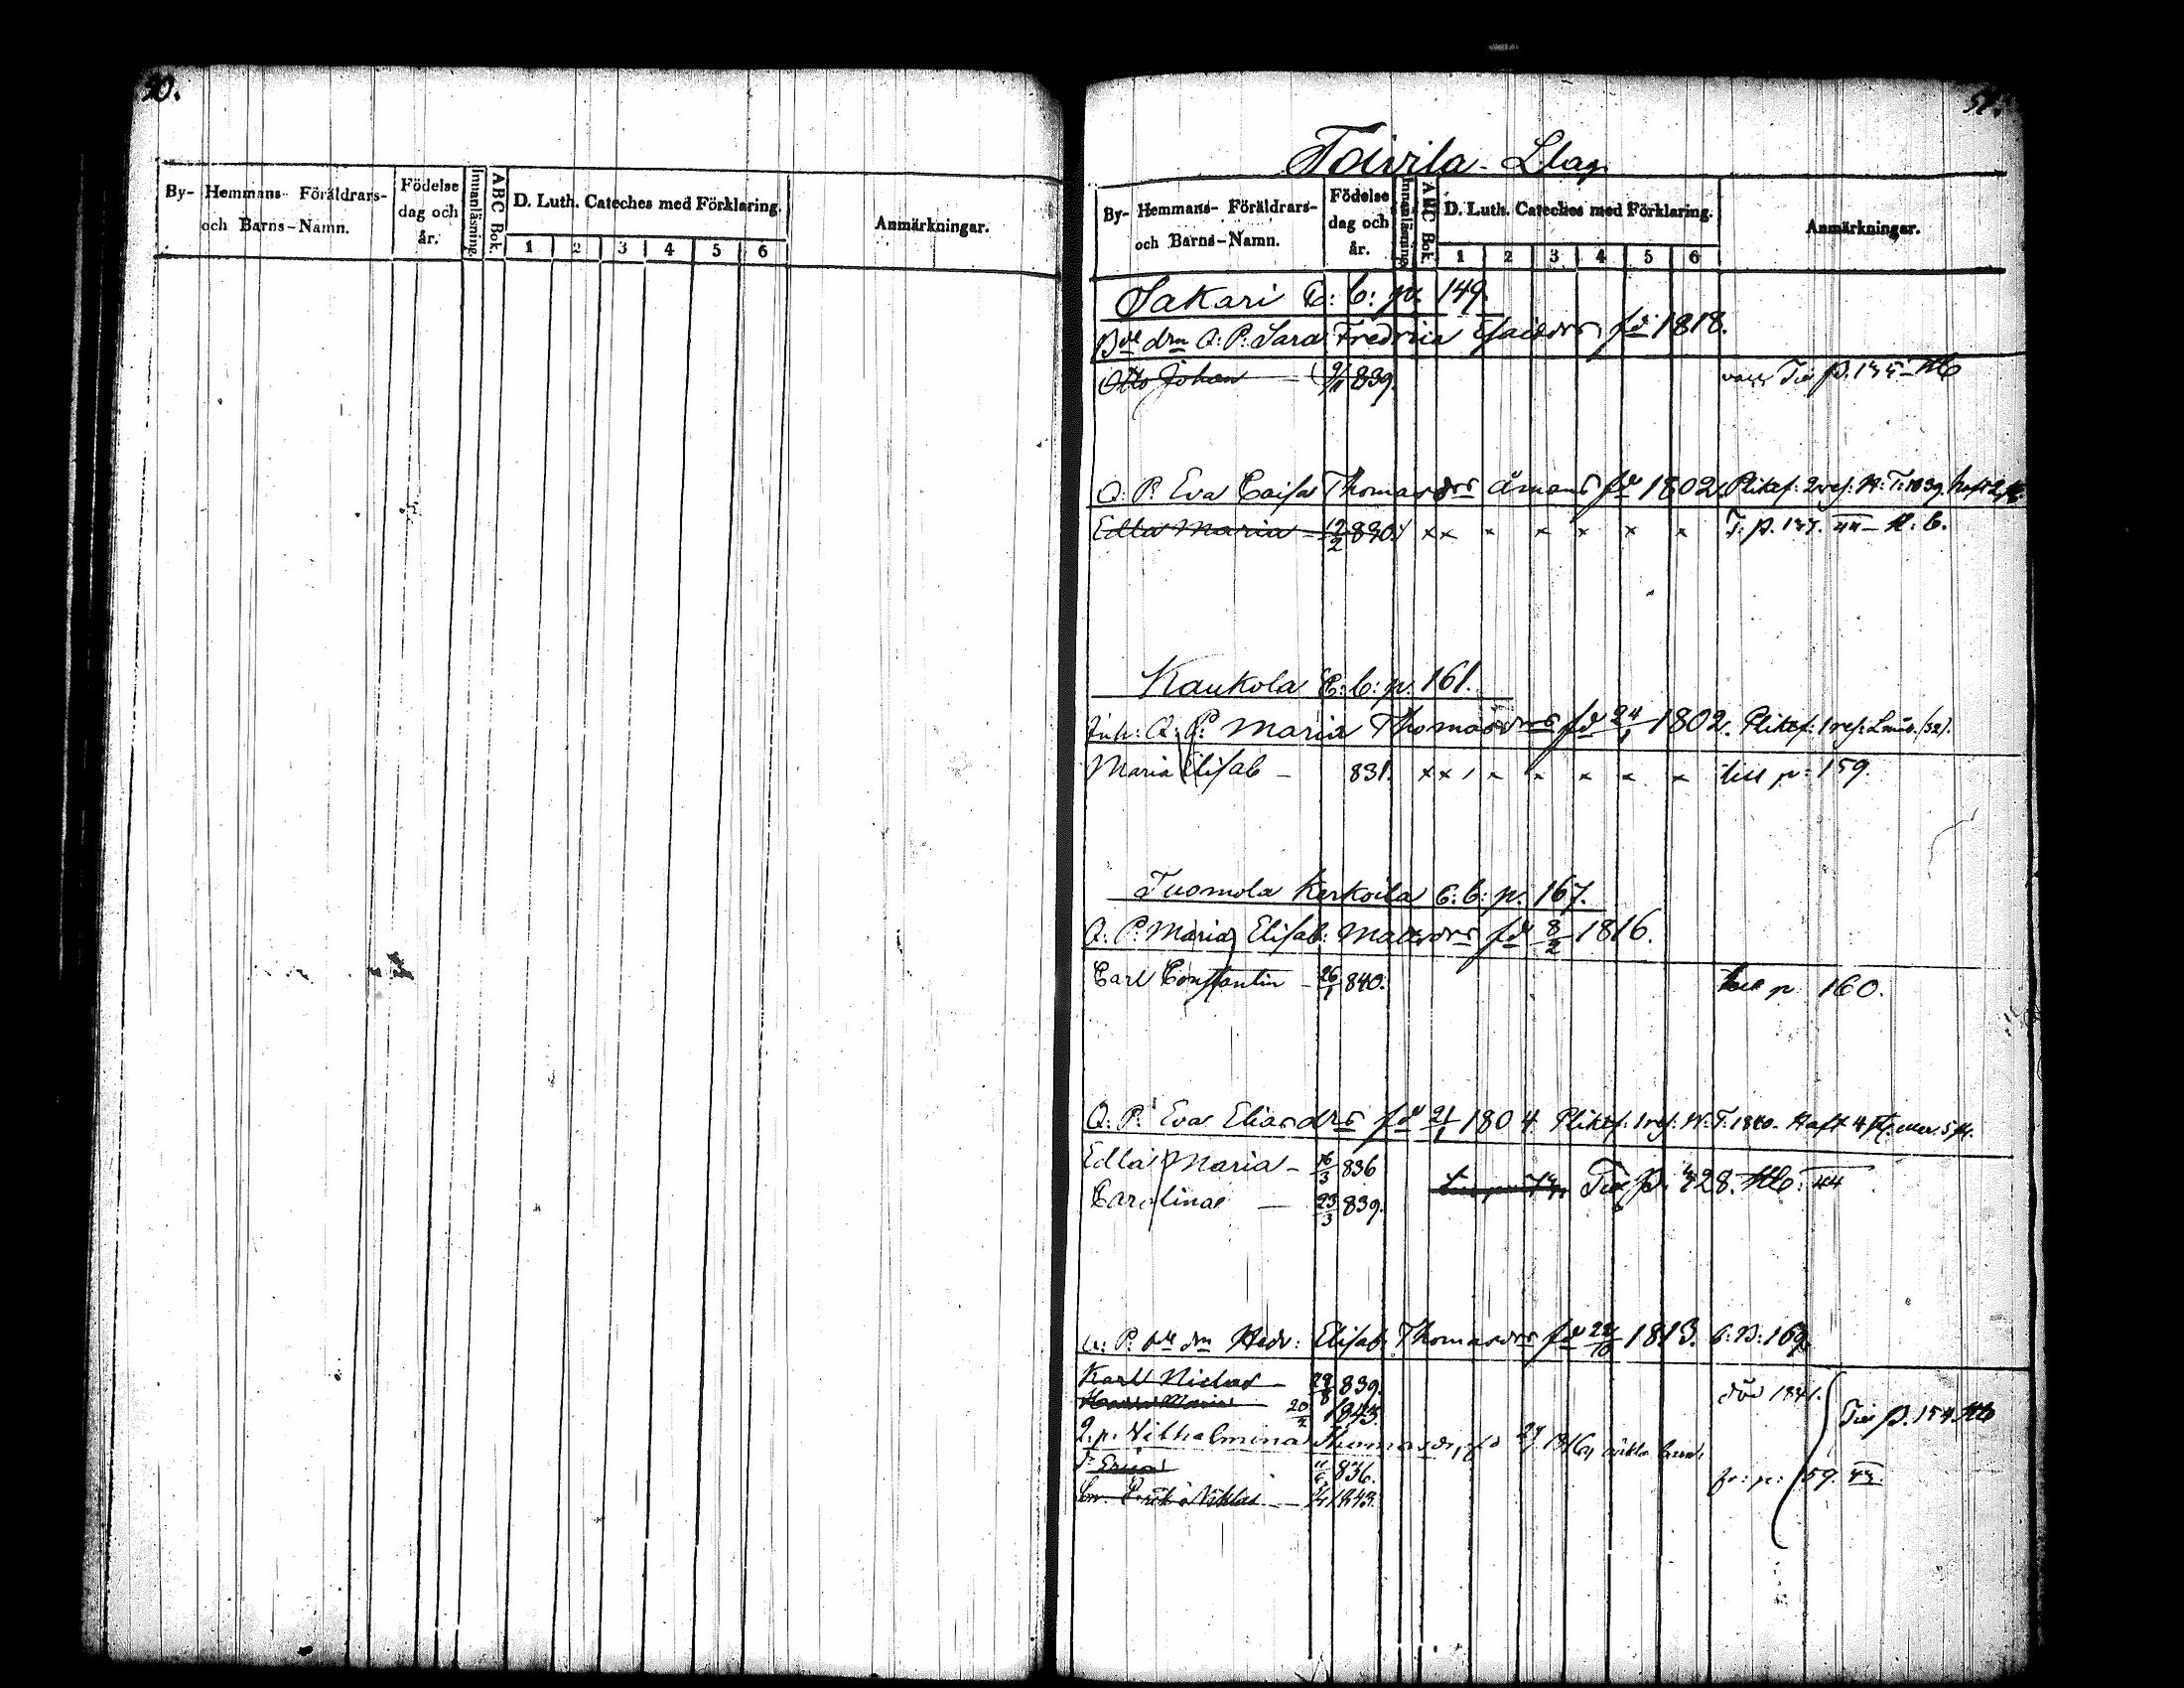 50.
By- Hemmans- Föräldrars-
och Barns-Namn.
Födelse
dag och
år.
Innanläsning.
ABC Bok.
D. Luth. Cateches med Förklaring.
1 2 3 4 5 6
Anmärkningar.
51.
Toivila- Llag
By- Hemmans- Föräldrars-
och Barns-Namn.
Födelse
dag och
år.
Innanläsning.
ABC Bok.
D. Luth. Cateches med Förklaring.
1 2 3 4 5 6
Anmärkningar.
Sakari C: b: p. 149.
Q: P: Sara Fredrica Esaiedrs fd 1818.
Otto Johan 839.
Q: P: Eva Caisa Thomasdrs fd 1802. Plikef: 2 res:
Edla Maria 12/2 840. x x x x x x x T. p. 137. 44
Kaukola C: b: p. 161.
Inh: Q: P: Maria Thomasdrs fd 24/1 1802. Plikef: 1 res:
Maria Elisab - 831. x x x x x x x till p: 159.
Tuomola Kerkoila C: b: p: 167.
Q: P: Maria Elisab: Mattsdrs fd 8/2 1816.
Carl Constantin - 26/1 840. till p 160.
Q: P: Eva Eliasdrs fd 21/1 1804 Plikef: 1 res: N: T: 1840. Haft 4
Edla Maria - 16/3 836
Carolina - 23/3 839. 428. 44
Q: P: Hedv: Elisab: Thomasdrs fd 1813. C: B: 169.
Karl Niclas - 28/8 839. död 1841.
Maria 1843. p. 154
Q. p. Vilhelmina Thomasdr, fd
Erica 836. fr: p: 159. 43.
Erik Niklas - 1843.